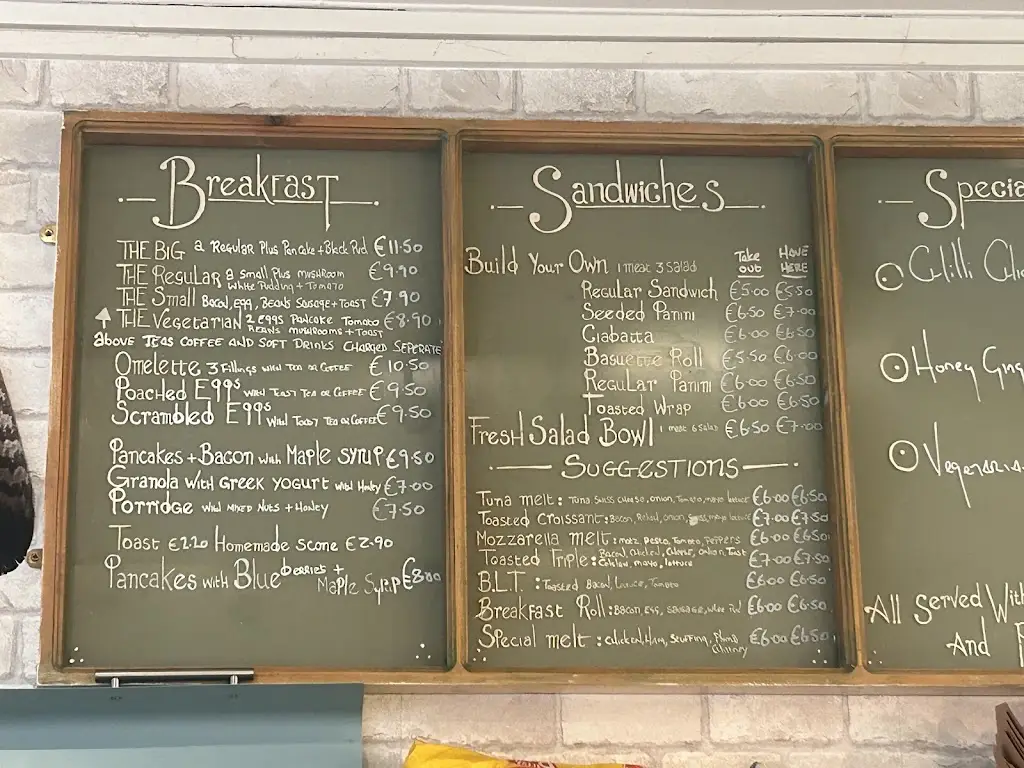 Breakfast
THE BIG a Regular Plus Pancake + Black Pud €11.50
THE Regular a Small Plus MUSHROOM €9.90
White Pudding + Tomato
THE Small Bacon, Egg, Beans Sausage + Toast €7.90
THE Vegetarian 2 Eggs Pancake Tomato €8.90
Beans Mushrooms + Toast
ABOVE TEAS COFFEE AND SOFT DRINKS CHARGED SEPERATE
Omelette 3 Fillings with Tea or Coffee €10.50
Poached Eggs with Toast Tea or Coffee €9.50
Scrambled Eggs with Toast Tea or Coffee €9.50
Pancakes + Bacon with Maple Syrup €9.50
Granola with Greek Yogurt with Honey €7.00
Porridge with Mixed Nuts + Honey €7.50
Toast €2.20 Homemade Scone €2.90
Pancakes with Blueberries + Maple Syrup €8.00
Sandwiches
Take out HAVE HERE
Build Your Own 1 meat 3 Salad
Regular Sandwich €5.00 €5.50
Seeded Panini €6.50 €7.00
Ciabatta €6.00 €6.50
Baguette Roll €5.50 €6.00
Regular Panini €6.00 €6.50
Toasted Wrap €6.00 €6.50
Fresh Salad Bowl 1 meat 6 Salad €6.50 €7.00
SUGGESTIONS
Tuna melt: Tuna, Swiss cheese, onion, Tomato, mayo lettuce €6.00 €6.50
Toasted Croissant: Bacon, Relish, onion, Swiss, mayo lettuce €7.00 €7.50
Mozzarella Melt: motz, Pesto, Tomato, Peppers €6.00 €6.50
Toasted Triple: Bacon, chicken, cheese, onion, Toast €7.00 €7.50
mayo, lettuce
B.L.T.: Toasted Bacon, Lettuce, Tomato €6.00 €6.50
Breakfast Roll: Bacon, Egg, Sausage, White Pud €6.00 €6.50
Special melt: chicken, Ham, Stuffing, €6.00 €6.50
chutney
Specia
Chilli Chic
Honey Ging
Vegetaria
All Served With
And